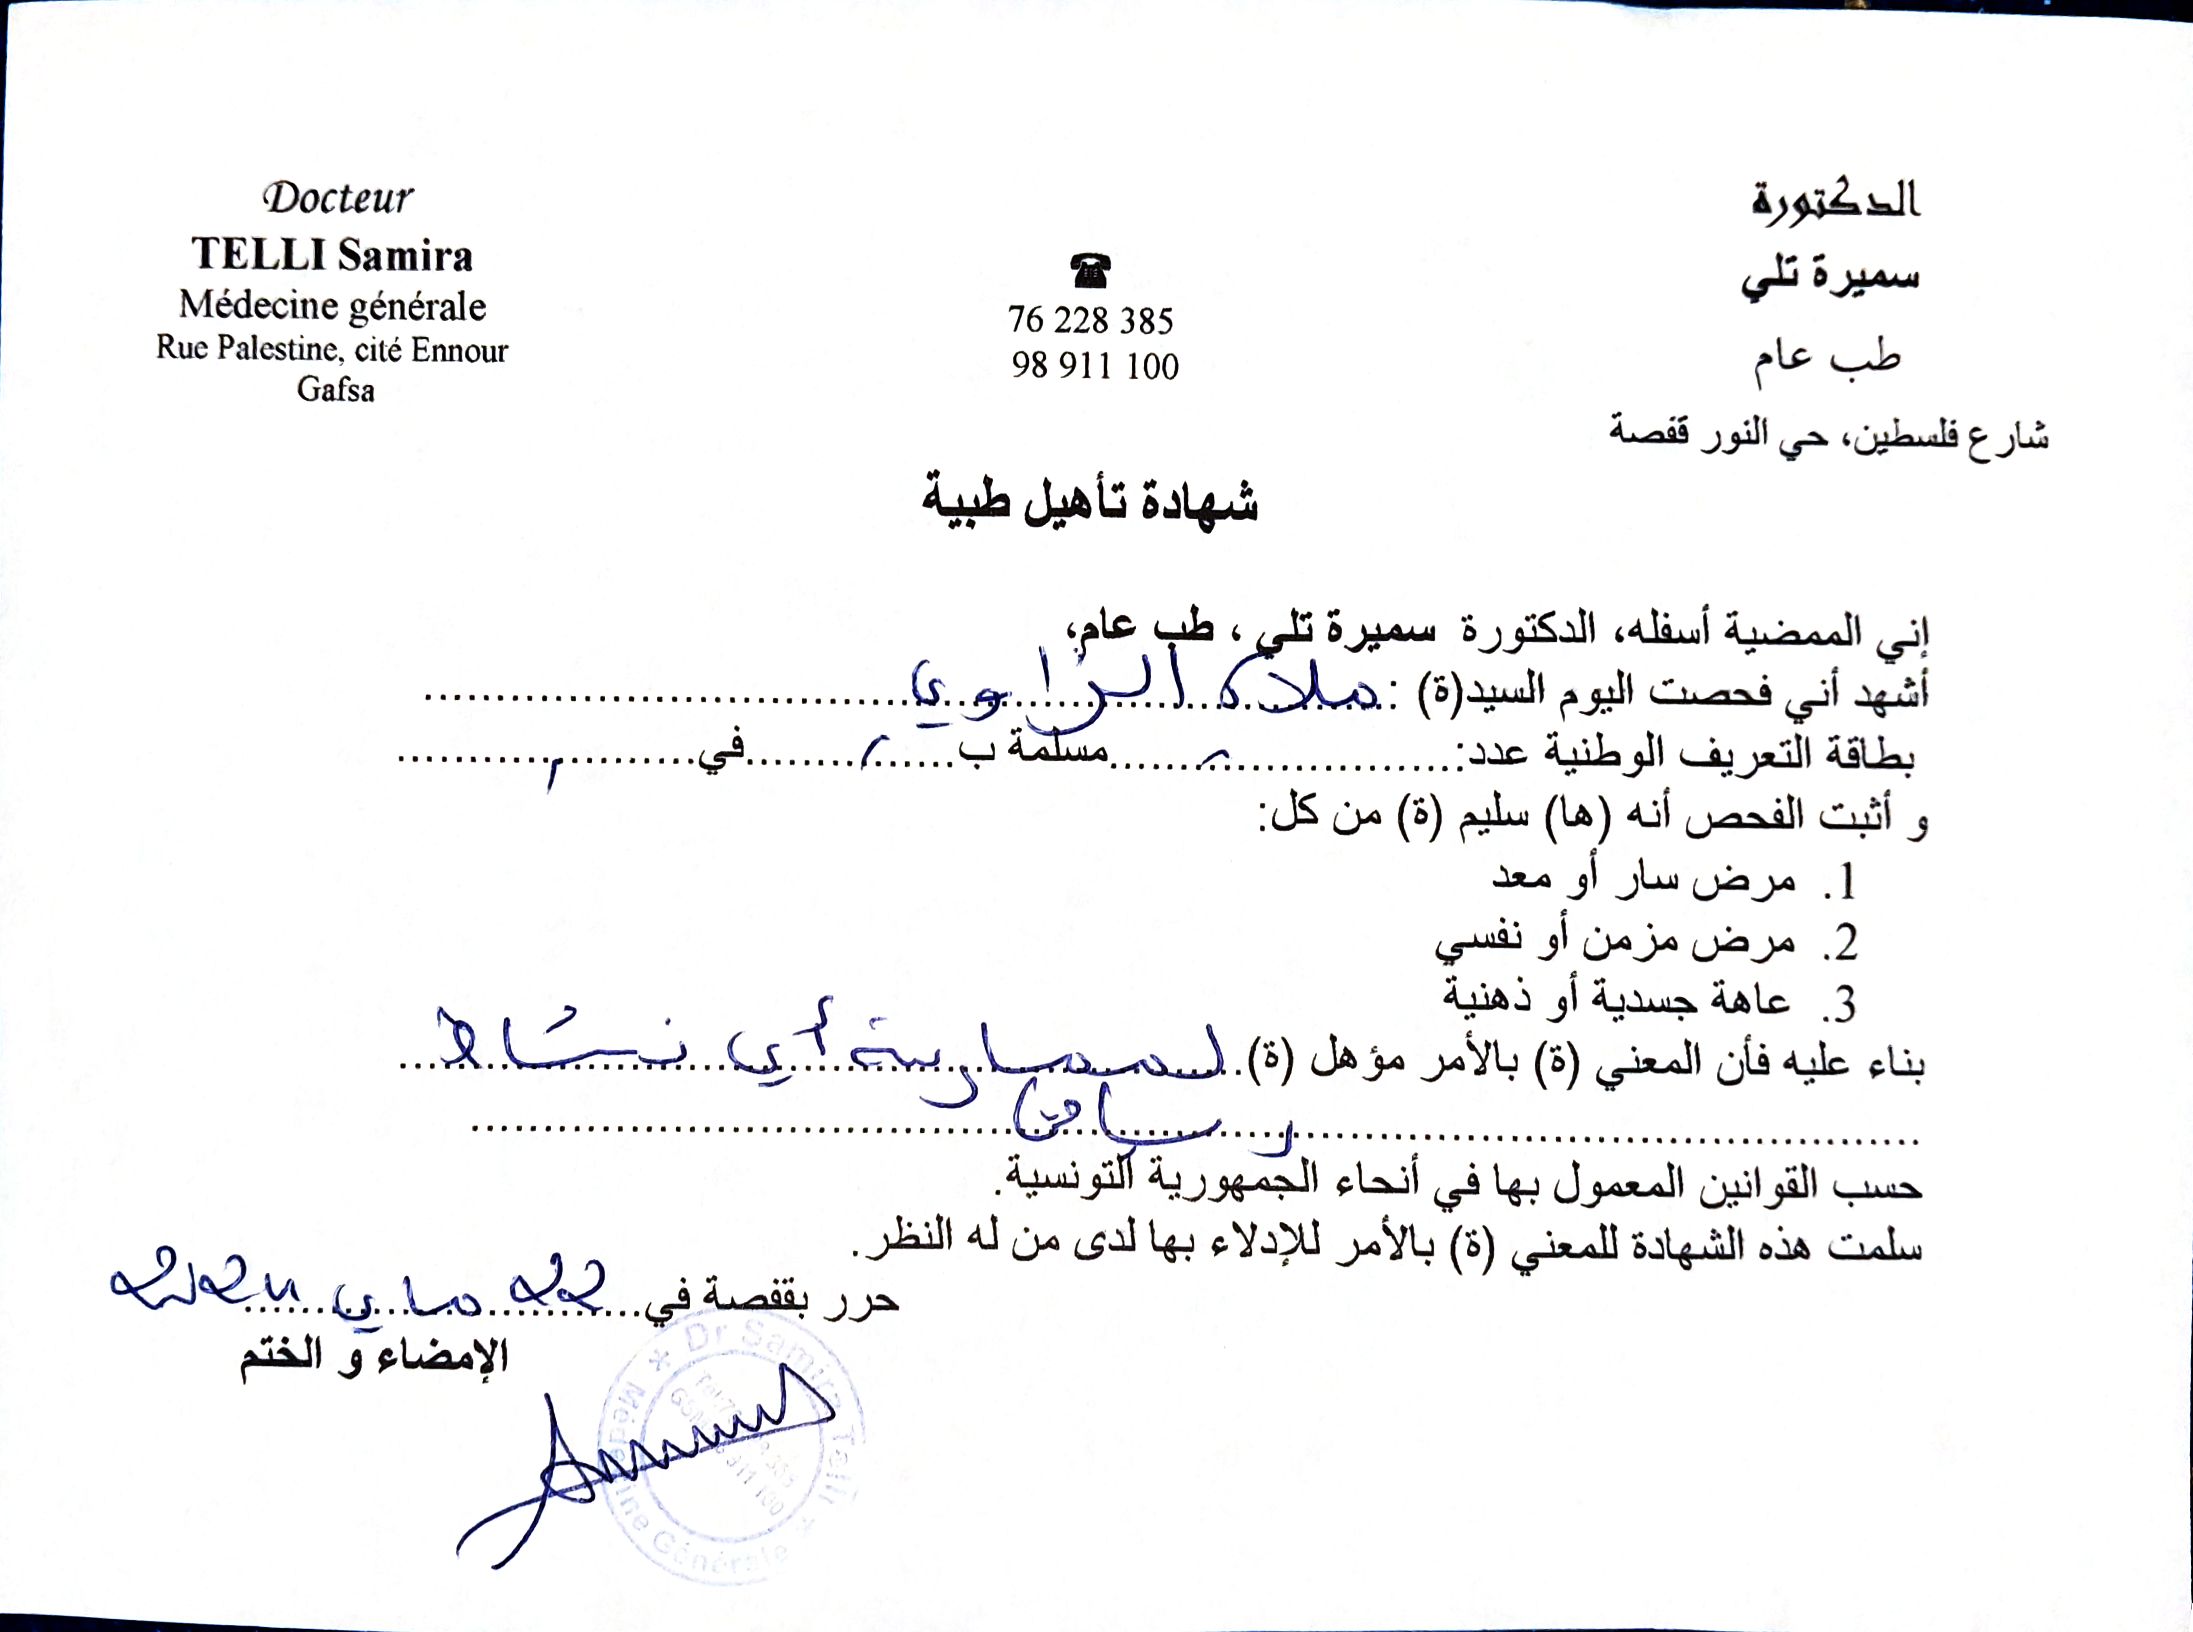 Docteur
TELLI Samira
Médecine générale
Rue Palestine, cité Ennour
Gafsa
76 228 385
98 911 100
الدكتورة
سميرة تلي
طب عام
شارع فلسطين، حي النور قفصة
شهادة تأهيل طبية
إني الممضية أسفله، الدكتورة سميرة تلي ، طب عام،
أشهد أني فحصت اليوم السيد(ة) : ملاك الزاوي
بطاقة التعريف الوطنية عدد:........مسلمة ب........في........
و أثبت الفحص أنه (ها) سليم (ة) من كل:
1. مرض سار أو معد
2. مرض مزمن أو نفسي
3. عاهة جسدية أو ذهنية
بناء عليه فأن المعني (ة) بالأمر مؤهل (ة) لممارسة أي نشاط
رياضي
حسب القوانين المعمول بها في أنحاء الجمهورية التونسية.
سلمت هذه الشهادة للمعني (ة) بالأمر للإدلاء بها لدى من له النظر.
حرر بقفصة في 22 ماي
الإمضاء و الختم
Dr Samira Telli
Médecine Générale